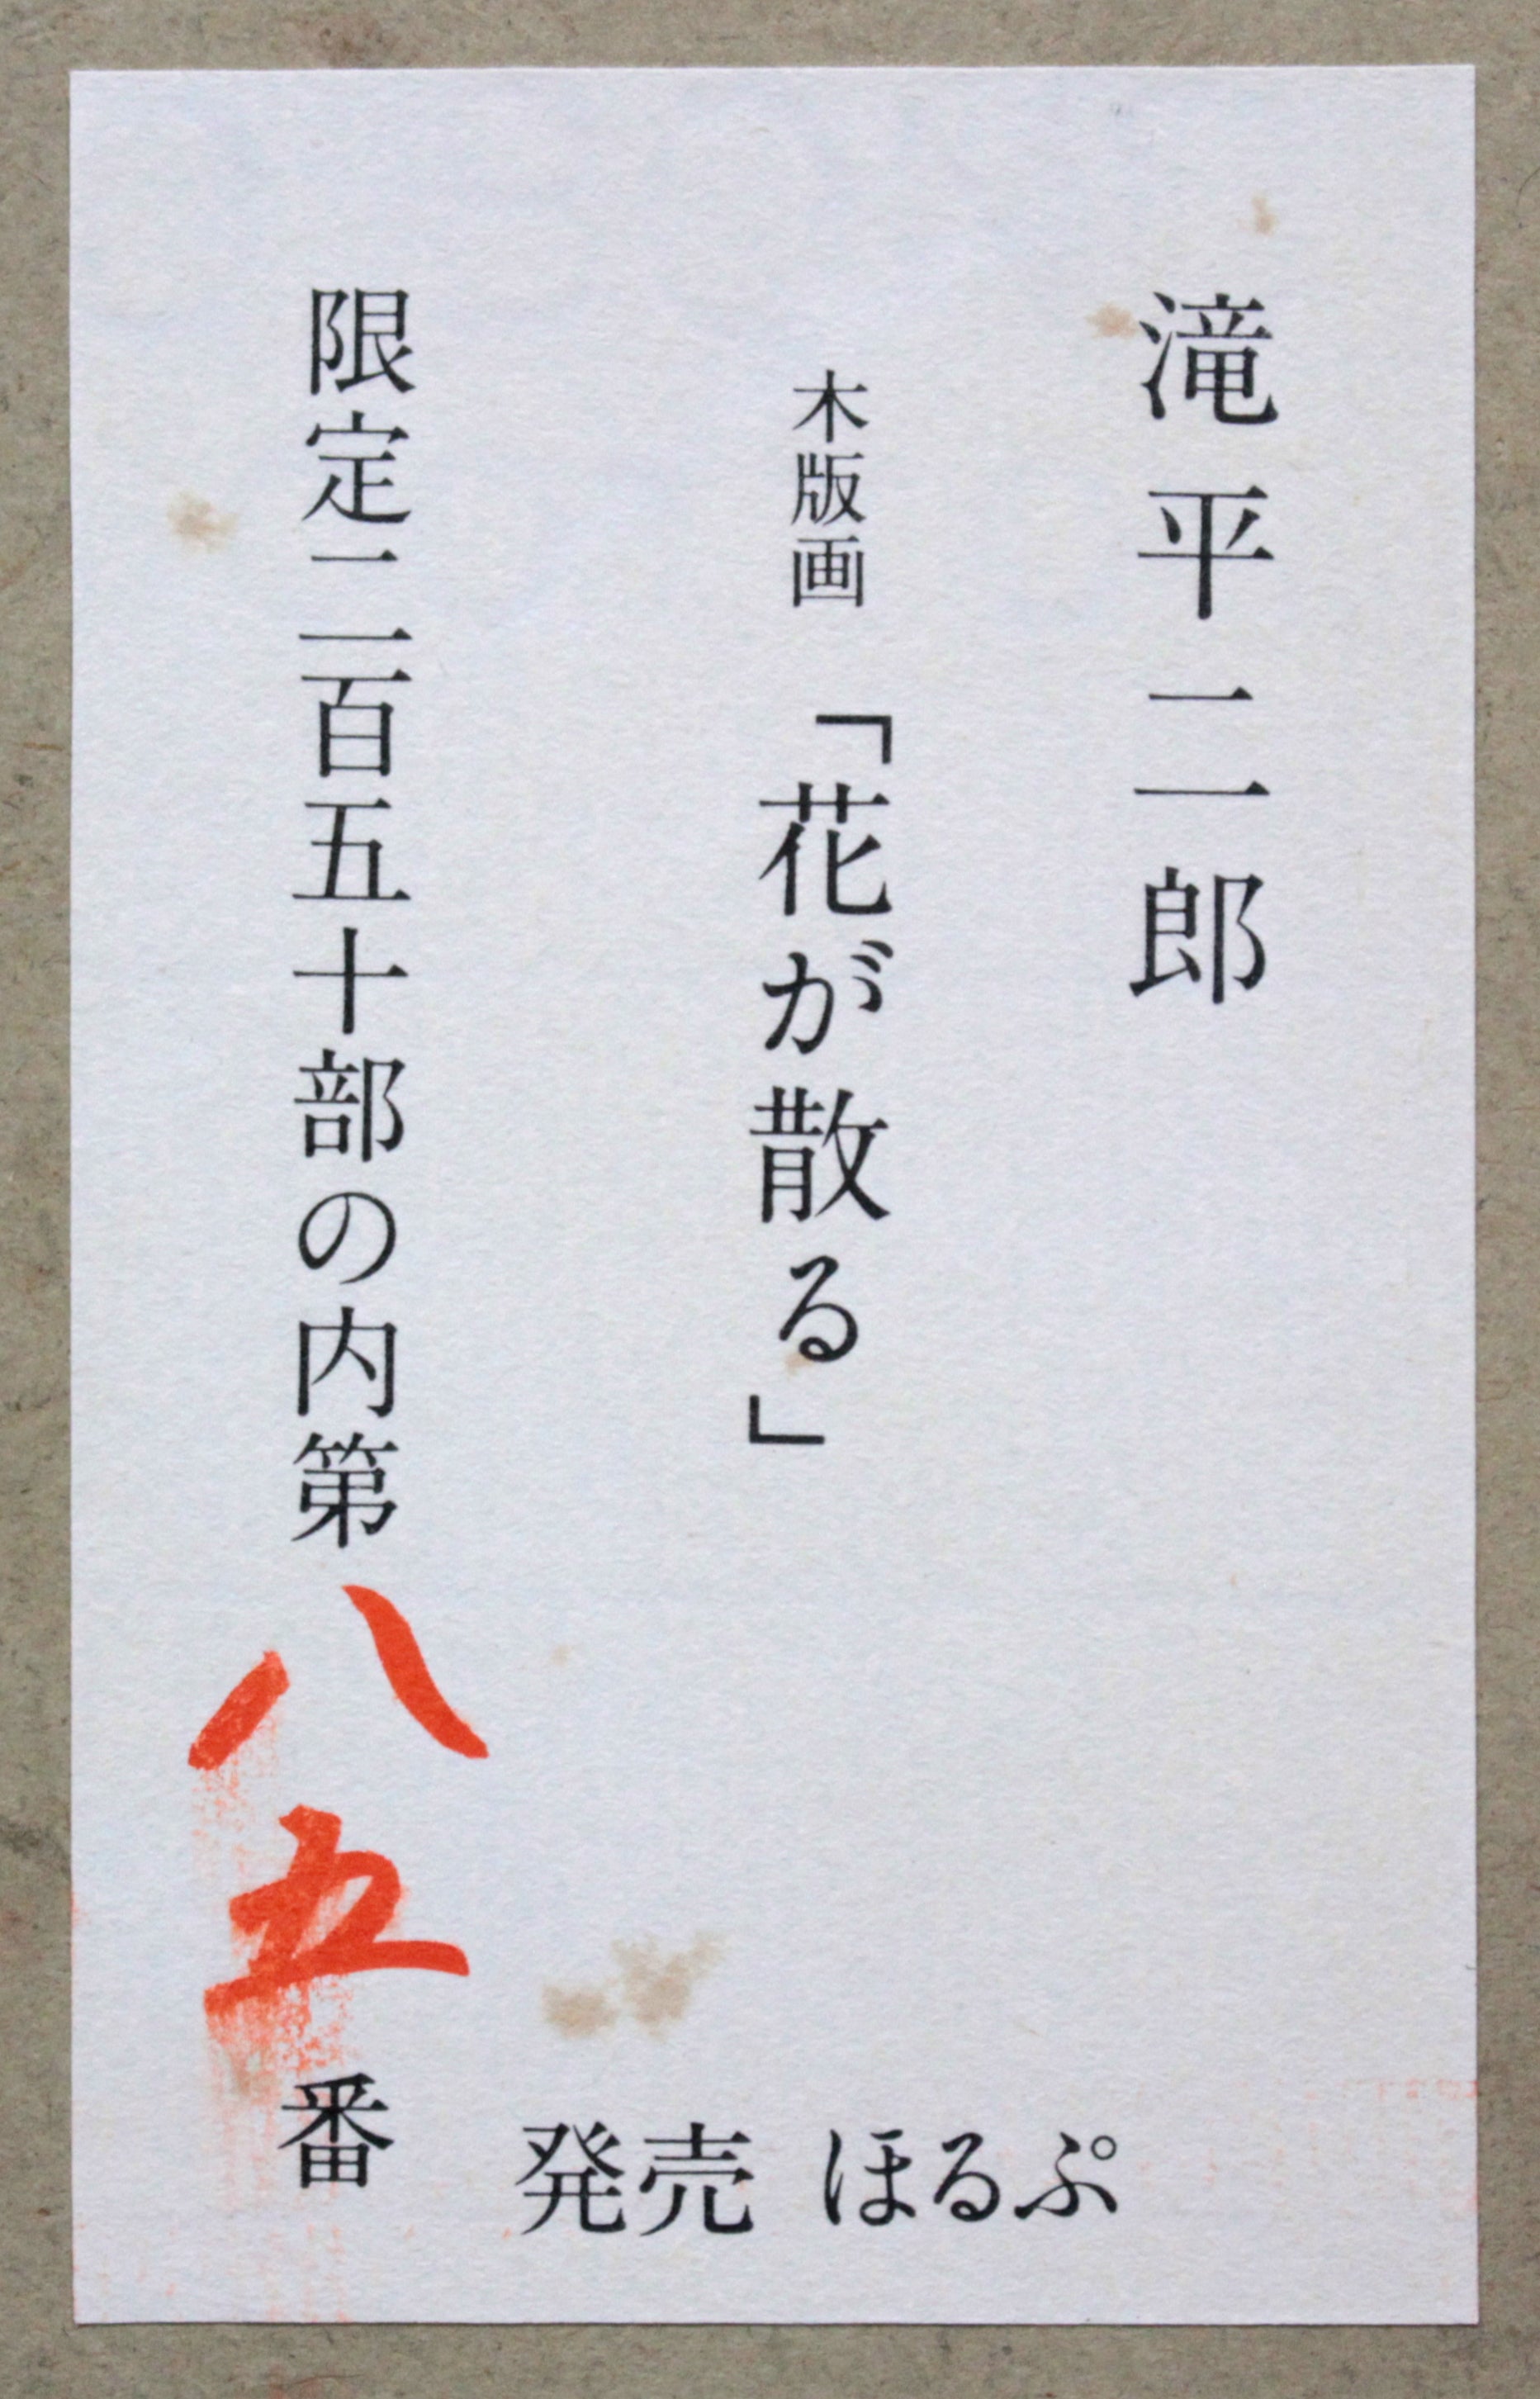 滝平二郎
木版画 「花が散る」
限定二百五十部の内第八五番
発売 ほるぷ